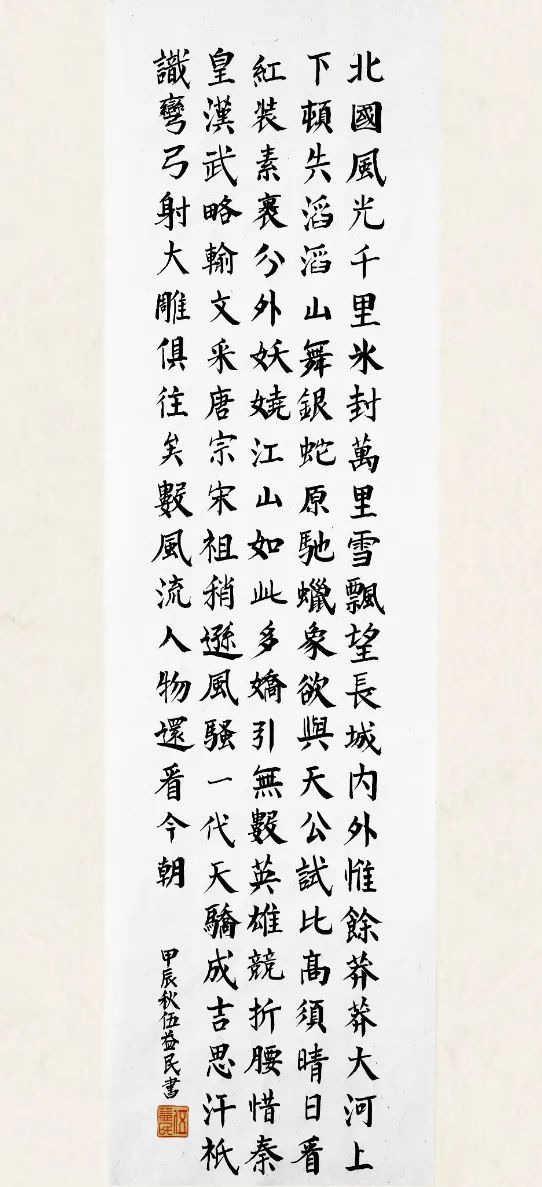 北國風光千里氷封萬里雪飄望長城内外惟餘莽莽大河上
下頓失滔滔山舞銀蛇原馳蠟象欲與天公試比高須晴日看
紅装素裹分外妖嬈江山如此多嬌引無數英雄競折腰惜秦
皇漢武略輸文采唐宗宋祖稍遜風騷一代天驕成吉思汗祇
識彎弓射大雕俱往矣數風流人物還看今朝
甲辰秋伍益民書
伍益民